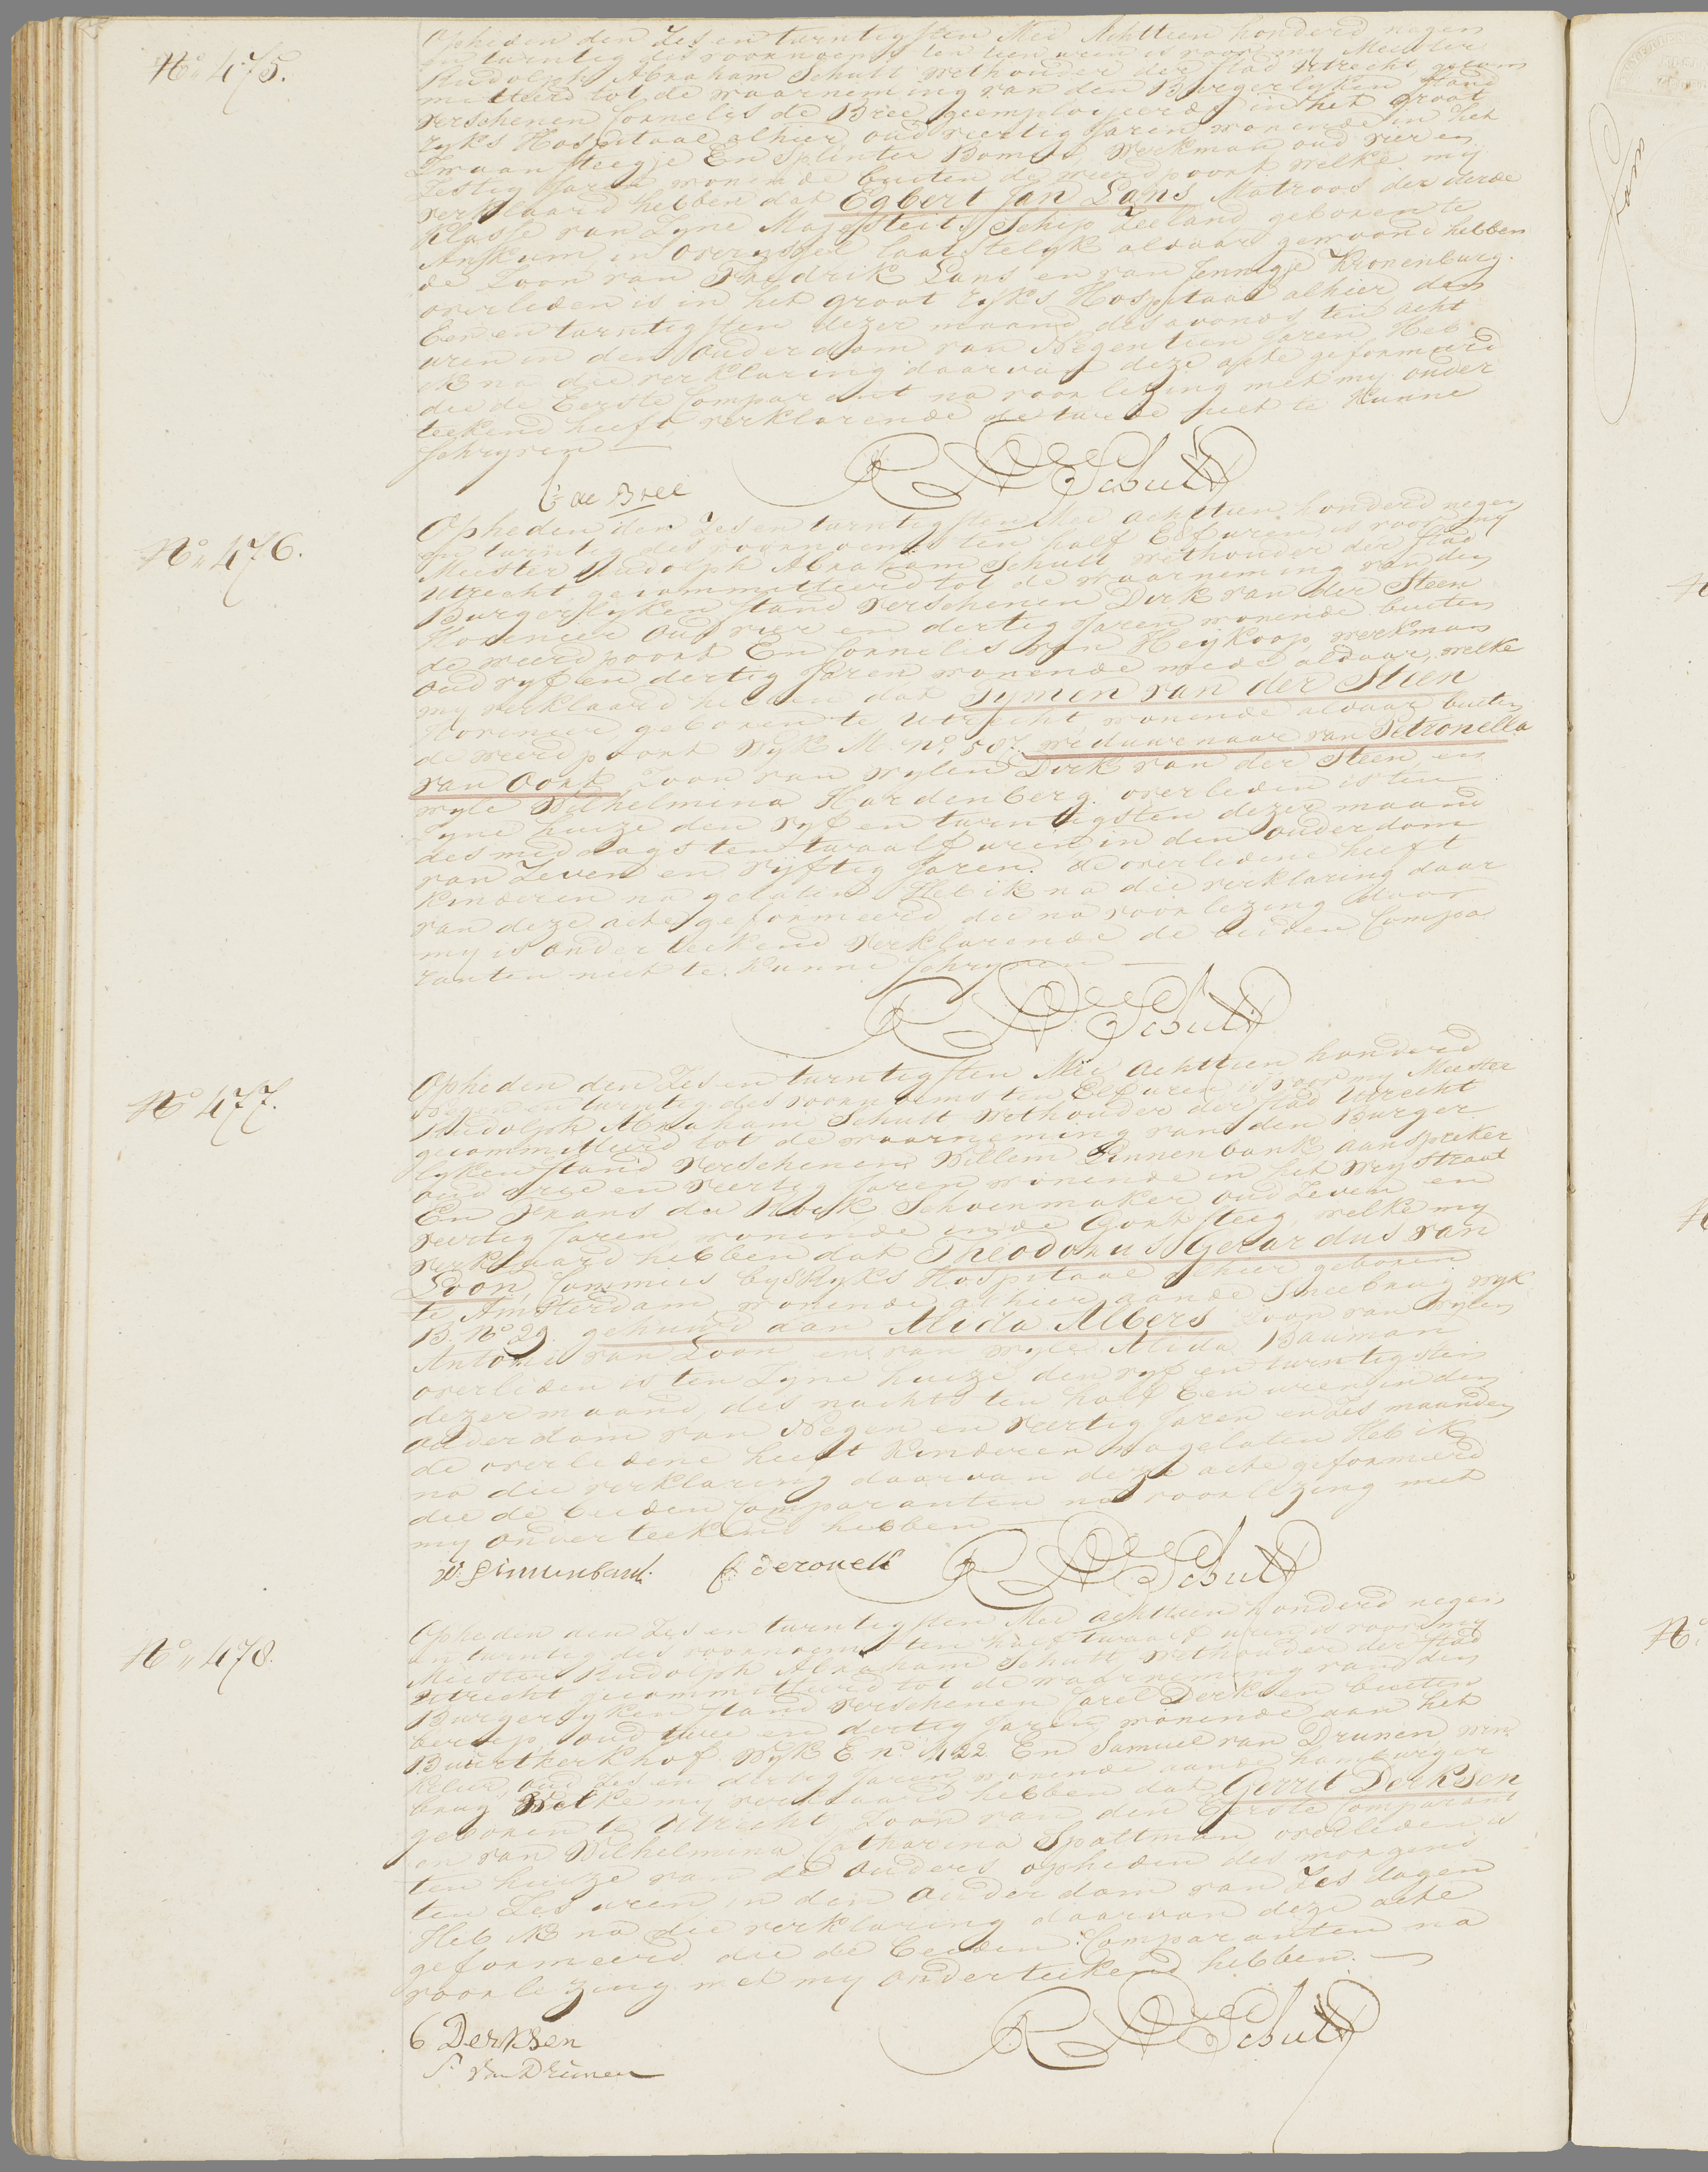 N.º 475.
Opheden den Zes en twintigsten Mei Achttien honderd negen
en twintig des voornoems ten tien uren is voor my Meester
Rudolph Abraham Schutt wethouder der stad Utrecht gecom
mitteerd tot de waarneming van den Burgerlyken stand
verschenen Cornelis de Bree geemployeerde in het groot
ryks Hospitaal alhier oud veertig Jaren wonende in het
Zwaansteegje En Splinter Bomer, werkman oud vier en
Zestig Jaren wonende buiten de weerdpoort welke my
verklaard hebben dat Egbert Jan Lans Matroos der derde
Klasse van Zyne Majesteits Schip Zeeland geboren te
Ankum in Overyssel laatstelyk aldaar gewoond hebben
de Zoon van Fredrik Lans en van Jennigje Kronenburg.
overleden is in het groot ryks Hospitaal alhier den
Een en twintigsten dezer maand des avonds ten acht
uren in den Ouderdom van Negentien Jaren Heb
ik na die verklaring daarvan deze acte geformeerd
die de Eerste Comparant na voorlezing met my onder
teekend heeft, verklarende de tweede niet te Kunne
schryven
C: de Bree
R A Schutt
N.º 476.
Opheden den Zes en twintigsten Mei achttien honderd negen
en twintig des voornoems ten half Elf uren is voor my
Meester Rudolph Abraham Schutt wethouder der stad
Utrecht gecommitteerd tot de waarneming van den
Burgerlyken stand verschenen Dirk van der Steen
Hovenier oud vier en dertig Jaren wonende buiten
de weerdpoort En Cornelis van Heykoop, werkman
oud vyf en dertig Jaren wonende mede aldaar, welke
my verklaard hebben dat Tymen van der Steen
Hovenier geboren te Utrecht wonende aldaar buiten
de weerdpoort Wyk M. nº 507. weduwenaar van Petronella
van Oort Zoon van wylen Dirk van der Steen en
wyle Wilhelmina Hardenberg. overleden is ten
Zyne huize den vyf en twintigsten dezer maand
des middags ten twaalf uren in den ouderdom
van Zeven en vyftig Jaren. De overledene heeft
Kinderen na gelaten Heb ik na die verklaring daar
van deze acte geformeerd, die na voorlezing door
my is onderteekend verklarende de beiden Compa
ranten niet te Kunne schryven
R A Schutt
N.º 477.
Opheden den Zes en twintigsten Mei achttien honderd
Negen en twintig des voornoems ten Elf uren is voor my Meester
Rudolph Abraham Schutt Wethouder der stad Utrecht
gecommitteerd tot de waarneming van den Burger
lyken stand verschenen Willem Dinnenbank aanspreker
oud drie en veertig Jaren wonende in het Wystraat
En Frans de Rouck Schoenmaker oud Zeven en
veertig Jaren wonende in de Gortsteeg, welke my
verklaard hebben dat Theodorus Gerardus van
Loon, Commies by S Ryks Hospitaal alhier geboren
te Amsterdam, wonende alhier aande Smeebrug wyk
B. Nº 29. gehuwd aan Alida Albers Zoon van wylen
Antonie van Loon en van wyle Alida Bauman
overleden is ten Zyne huize den vyf en twintigsten
dezer maand, des nachts ten half Een uren in den
ouderdom van Negen en veertig Jaren en Zes maanden
de overledene heeft Kinderen nagelaten Heb ik
na die verklaring daarvan deze acte geformeerd
die de beiden Comparanten na voorlezing met
my onderteekend hebben
W. Dinnenbank.
F: Derouck
R A Schutt
N.º 478.
Opheden den Zes en twintigsten Mei achttien honderd negen
en twintig des voornoems ten half twaalf uren is voor my
Meester Rudolph Abraham Schutt Wethouder der stad
Utrecht gecommitteerd tot de waarneming van den
Burgerlyken stand verschenen Carel Derksen buiten
beroep oud twee en dertig Jaren wonende aan het
Buurtkerkhof Wyk E nº 422 En Samuel van Drunen, win
kelier oud Zes en dertig Jaren wonende aande hamburger
brug Welke my verklaard hebben dat Gerrit Derksen
geboren te Utrecht Zoon van den Eerste Comparant
en van Wilhelmina Catharina Spaltman overleden is
ten huize van de Ouders opheden des morgens
ten Zes uren in den Ouderdom van Zes dagen
Heb ik na die verklaring daarvan deze acte
geformeerd die de beiden Comparanten na
voorlezing met my onderteekend hebben.
C Derksen
S van Drunen
R A Schutt